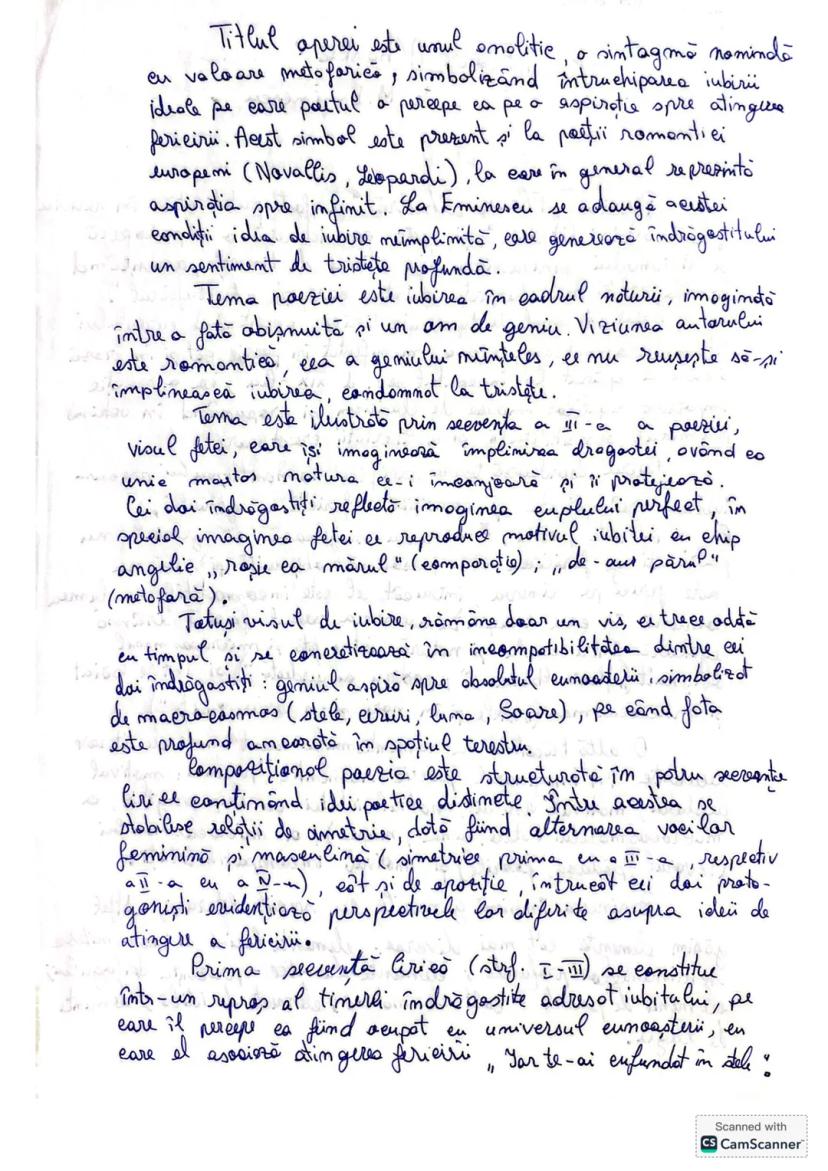 Titlul operei este unul analitic, o sintagmă nominală
cu valoare metaforică, simbolizând întruchiparea iubirii
ideale pe care poetul o percepe ca pe o aspirație spre atingerea
fericirii. Acest simbol este prezent și la poeții romantici
europeni (Novallis, Leopardi), la care în general reprezintă
aspirația spre infinit. La Eminescu se adaugă acestei
condiții idia de iubire neîmplinită, care generează îndrăgostitului
un sentiment de tristețe profundă.
Tema poeziei este iubirea în cadrul naturii, imaginată
între o fată obișnuită și un om de geniu. Viziunea autorului
este romantică, cea a geniului neînțeles, ce nu reușește să-și
împlinească iubirea, condamnat la tristețe.
Tema este ilustrată prin secvența a III-a a poeziei,
visul fetei, care își imaginează împlinirea dragostei, având ca
unic martor natura ce-i înconjoară și îi protejează.
Cei doi îndrăgostiți reflectă imaginea cuplului perfect, în
special imaginea fetei ce reproduce motivul iubitei cu chip
angelic „roșie ca mărul" (comparație); „de-aur părul"
(metaforă).
Totuși visul de iubire, rămâne doar un vis, ce trece odată
cu timpul și se concretizează în incompatibilitatea dintre cei
doi îndrăgostiți: geniul aspiră spre absolutul cunoașterii, simbolizat
de macrocosmos (stele, ceruri, luna, Soare), pe când fata
este profund ancorată în spațiul terestru.
Compozițional poezia este structurată în patru secvențe
lirice conținând idei poetice distincte. Între acestea se
stabilesc relații de simetrie, dată fiind alternarea vocilor
feminină și masculină (simetrice prima cu a III-a, respectiv
a II-a cu a IV-a), cât și de opoziție, întrucât cei doi prota-
goniști evidențiază perspectivele lor diferite asupra ideii de
atingere a fericirii.
Prima secvență lirică (strf. I-III) se constitue
într-un reproș al tinerei îndrăgostite adresat iubitului, pe
care îl percepe ca fiind ocupat cu universul cunoașterii, cu
care el asociază atingerea fericirii „Iar te-ai cufundat în stele".
Scanned with
CS CamScanner